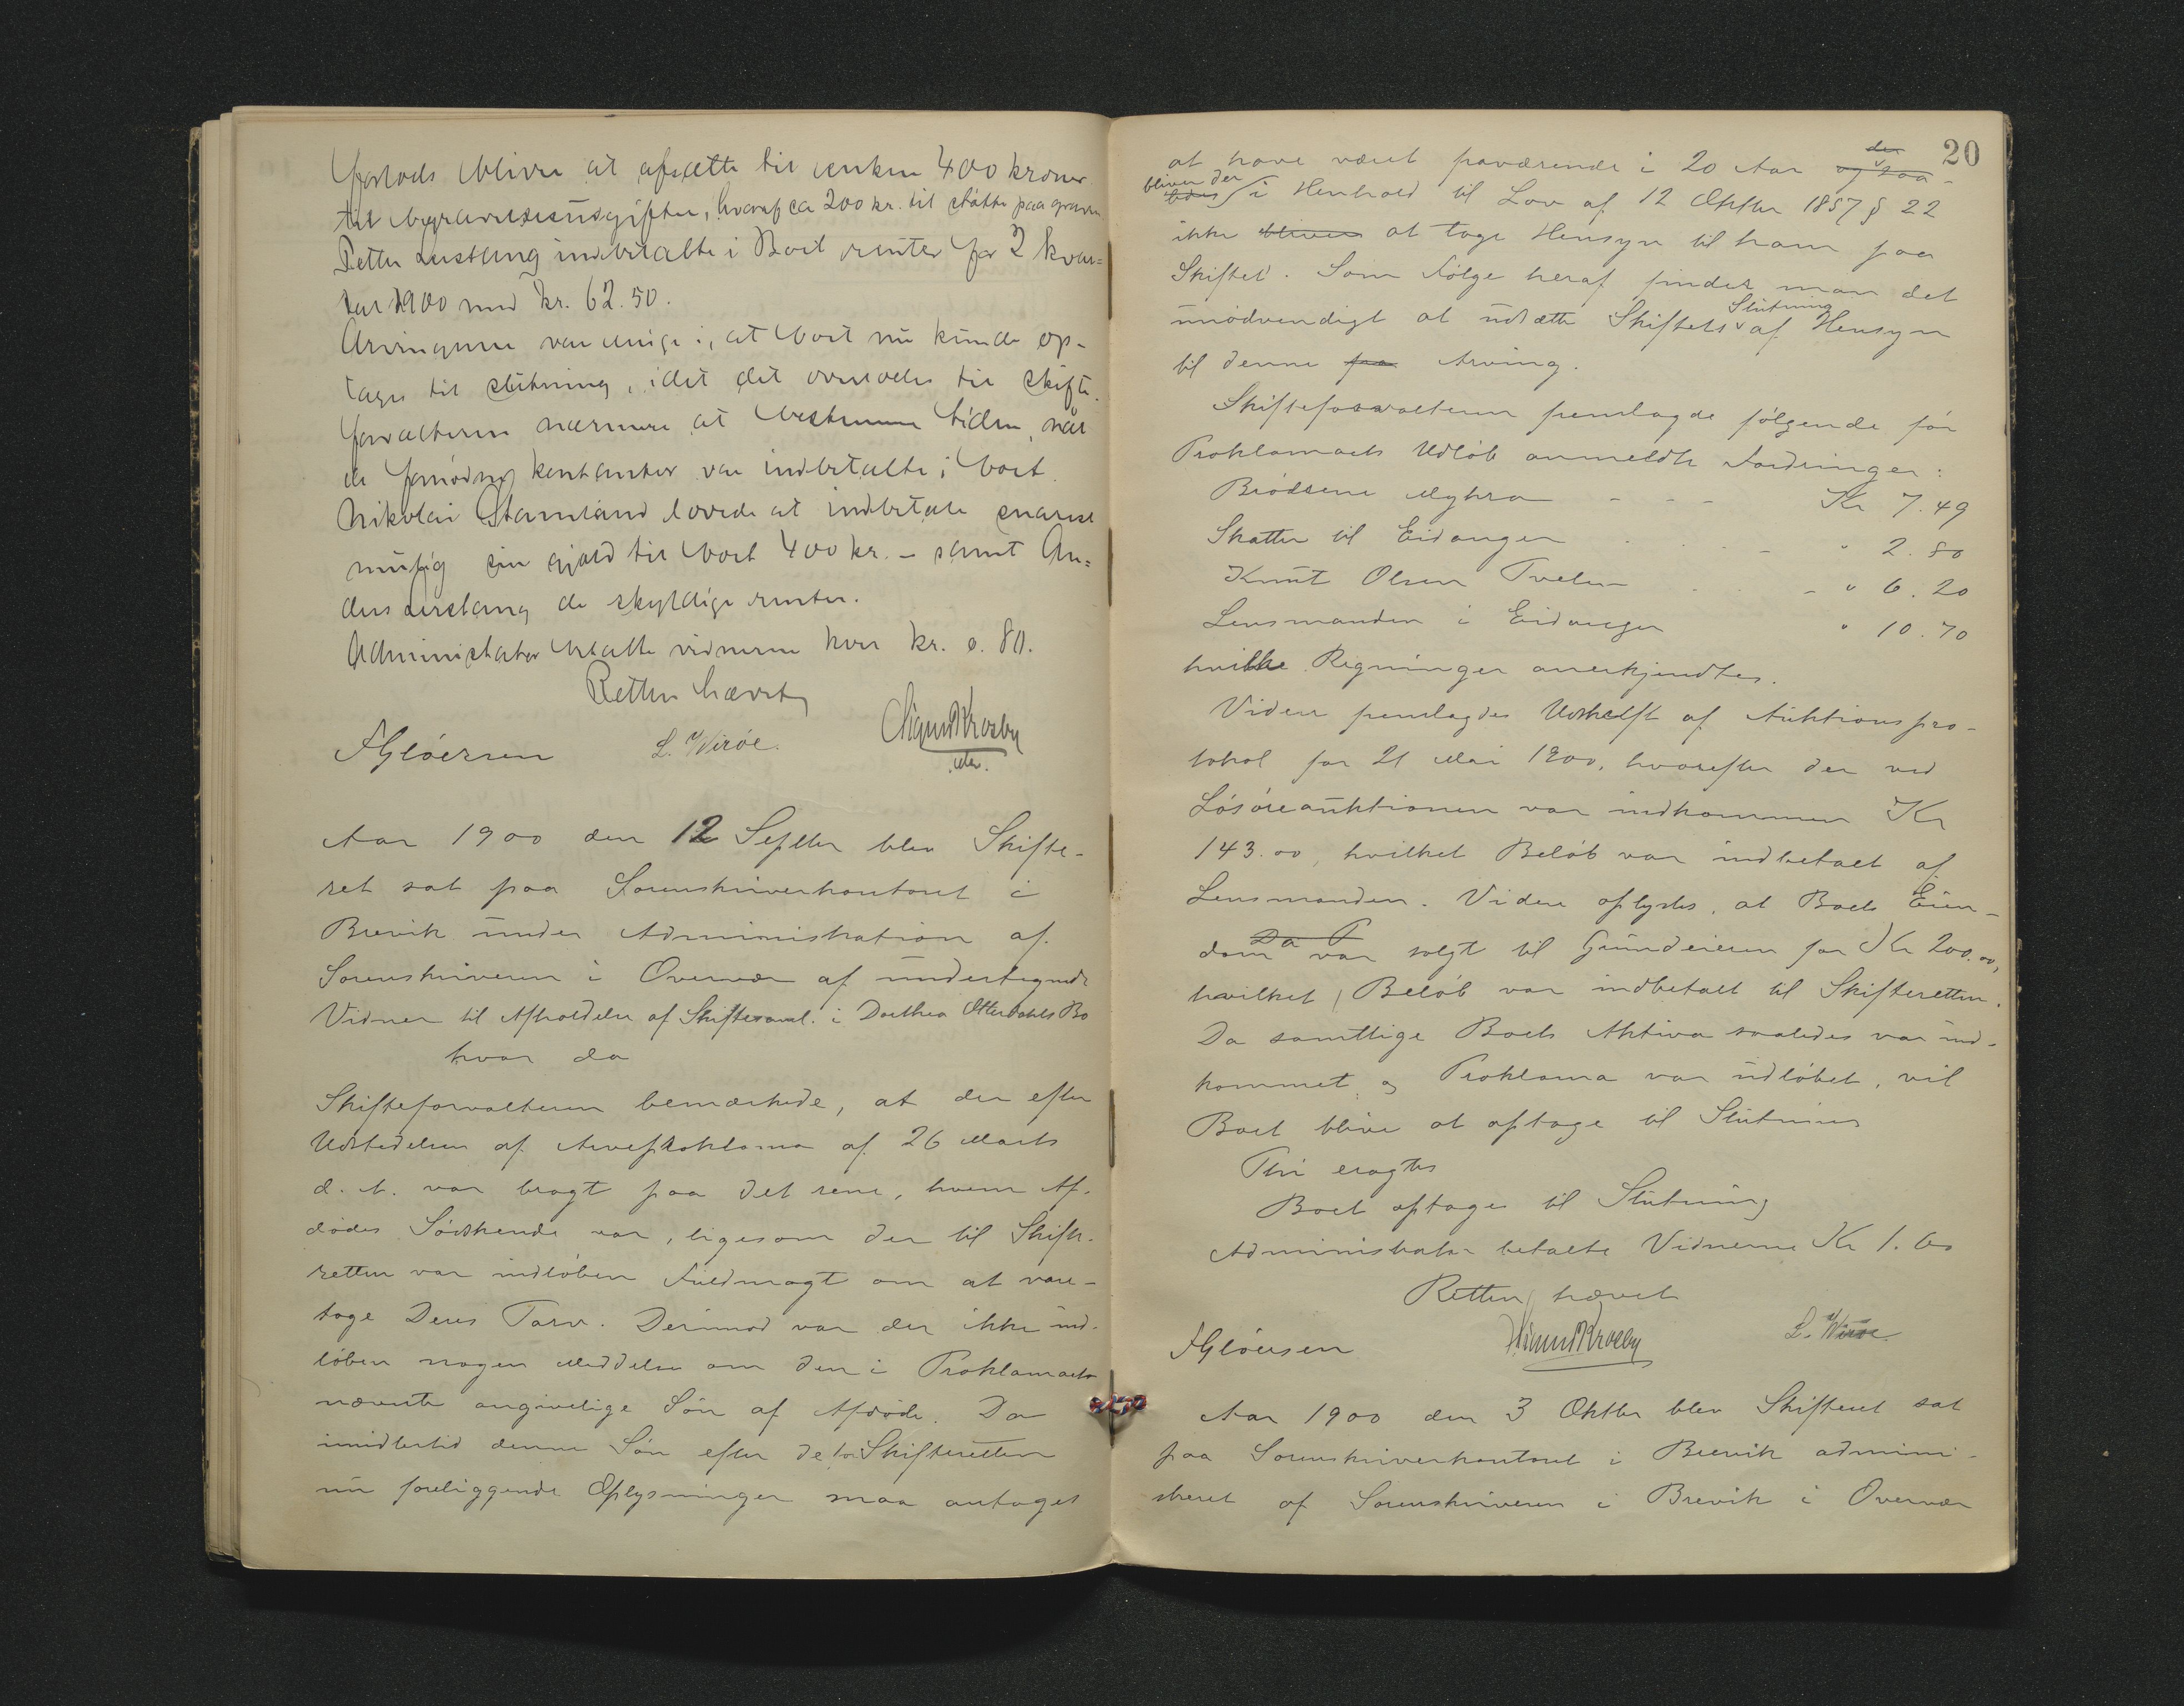 forlods bliver at afsætte til enken 400 kroner
til begravelsesudgifter, hvoraf ca 200 kr. til støtte paa graven
Petter Lerstang indbetalte i Boet renter for 2 kvar=
tal 1900 med kr. 62.50.
Arvingerne var enige i, at boet nu kunde op-
tages til slutning, idet det overlodes til skifte
forvalteren nærmere at bestemme tiden, når
de fornødne kontanter var indbetalte i boet.
Nikolai Stamland lovede at indbetale snarest
mulig sin gjæld til boet 400 kr. – samt An=
ders Lerstang de skyldige renter.
Administrator betalte vidnerne hver kr. 0.80.
Retten hævet
AGlöersen L. Wirøe. Sigurd Krosby
Aar 1900 den 12 Septbr blev Skifte-
ret sat paa Sorenskriverkontoret i
Brevik under Administration af
Sorenskriveren i Overvær af undertegnede
Vidner til Afholdelse af Skiftesaml. i Dorthea Otterdahls Bo
hvor da
Skifteforvalteren bemærkede, at der efter
Udstedelsen af Arveproklama af 26 Marts
d. A. var bragt paa det rene, hvem Af-
dødes Sødskende var, ligesom der til Skifte-
retten var indløben Fuldmagt om at vare-
tage Deres Tarv. Derimod var der ikke ind-
løben nogen Meddelse om den i Proklamaet
nævnte angivelige Søn af Afdøde. Da
imidlertid denne Søn efter de for Skifteretten
nu foreliggende Oplysninger maa antages
20
at have været fraværende i 20 Aar og saa- der
ledes bliver der i Henhold til Lov af 12 Oktbr 1857 § 22
ikke bliver at tage Hensyn til ham paa
Skiftet. Som Følge heraf finder man det
unødvendigt at udsætte Skiftets Slutning af Hensyn
til denne fra Arving.
Skifteforvalteren fremlagde følgende før
Proklamaets Udløb anmeldte Fordringer:
Brødrene Myhra - - - Kr 7.49
Skatter til Eidanger . . . - " 2.80
Knut Olsen Tveten . . - " 6.20
Lensmanden i Eidanger " 10.70
hvilke Regninger anerkjendtes.
Videre fremlagdes Udskrift af Auktionspro-
tokol for 21 Mai 1900, hvorefter der ved
Løsøreauktionen var indkommen Kr
143.00, hvilket Beløb var indbetalt af
Lensmanden. Videre oplystes, at Boets Eien-
dom Da P var solgt til Grundeieren for Kr 200.00,
hvilket Beløb var indbetalt til Skifteretten.
Da samtlige Boets Aktiva saaledes var ind-
kommet og Proklama var udløbet, vil
Boet blive at optage til Slutning
Thi eragtes
Boet optages til Slutning
Administrator betalte Vidnerne Kr 1.60
Retten hævet
AGlöersen Sigurd Krosby L. Wirøe
Aar 1900 den 3 Oktbr blev Skifteret sat
paa Sorenskriverkontoret i Brevik admini-
streret af Sorenskriveren i Brevik i Overvær